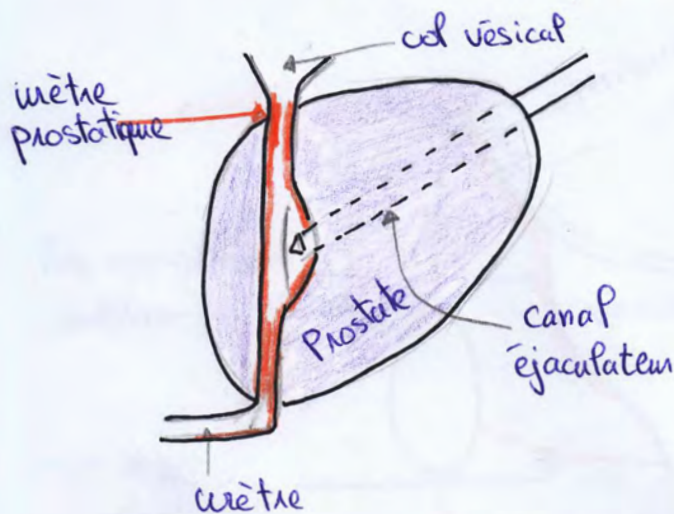 col vésical
urètre
prostatique
Prostate
canal
éjaculateur
urètre